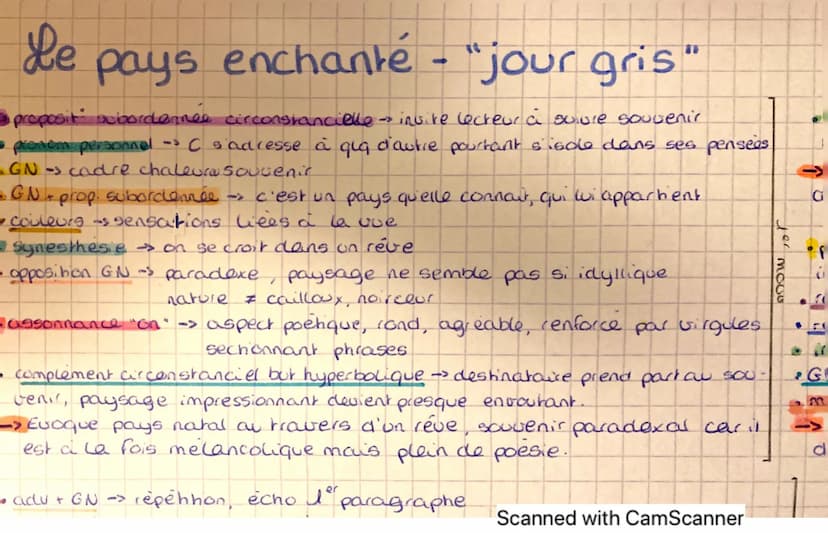 Le pays enchanté - "jour gris"
proposit° subordonnée circonstancielle → invite lecteur à suivre souvenir
• pronom personnel → C s'adresse à qlq d'autre pourtant s'isole dans ses pensées
• GN → cadre chaleureux souvenir
• GN + prop. subordonnée → c'est un pays qu'elle connait, qui lui appartient
• couleurs → sensations liées à la vue
• synesthésie → on se croit dans un rêve
• opposition GN → paradoxe, paysage ne semble pas si idyllique
nature ≠ cailloux, noirceur
• assonnance "on" → aspect poétique, rond, agréable, renforcé par virgules
sectionnant phrases
• complément circonstanciel but hyperbolique → destinataire prend part au sou-
venir, paysage impressionnant devient presque envoutant.
→ Evoque pays natal au travers d'un rêve, souvenir paradoxal car il
est à la fois mélancolique mais plein de poésie.
1er mouv
• adv + GN → répétition, écho 1er paragraphe
Scanned with CamScanner